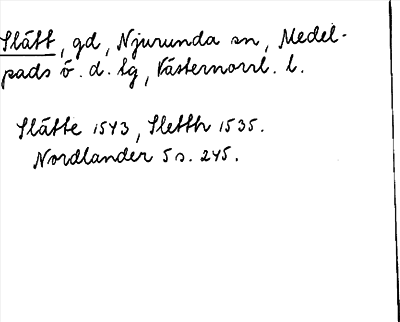 Slätt, gd, Njurunda sn, Medel-
pads ö. d. lg, Västernorrl. l.
Slätte 1543, Sletth 1535.
Nordlander 5 s. 245.